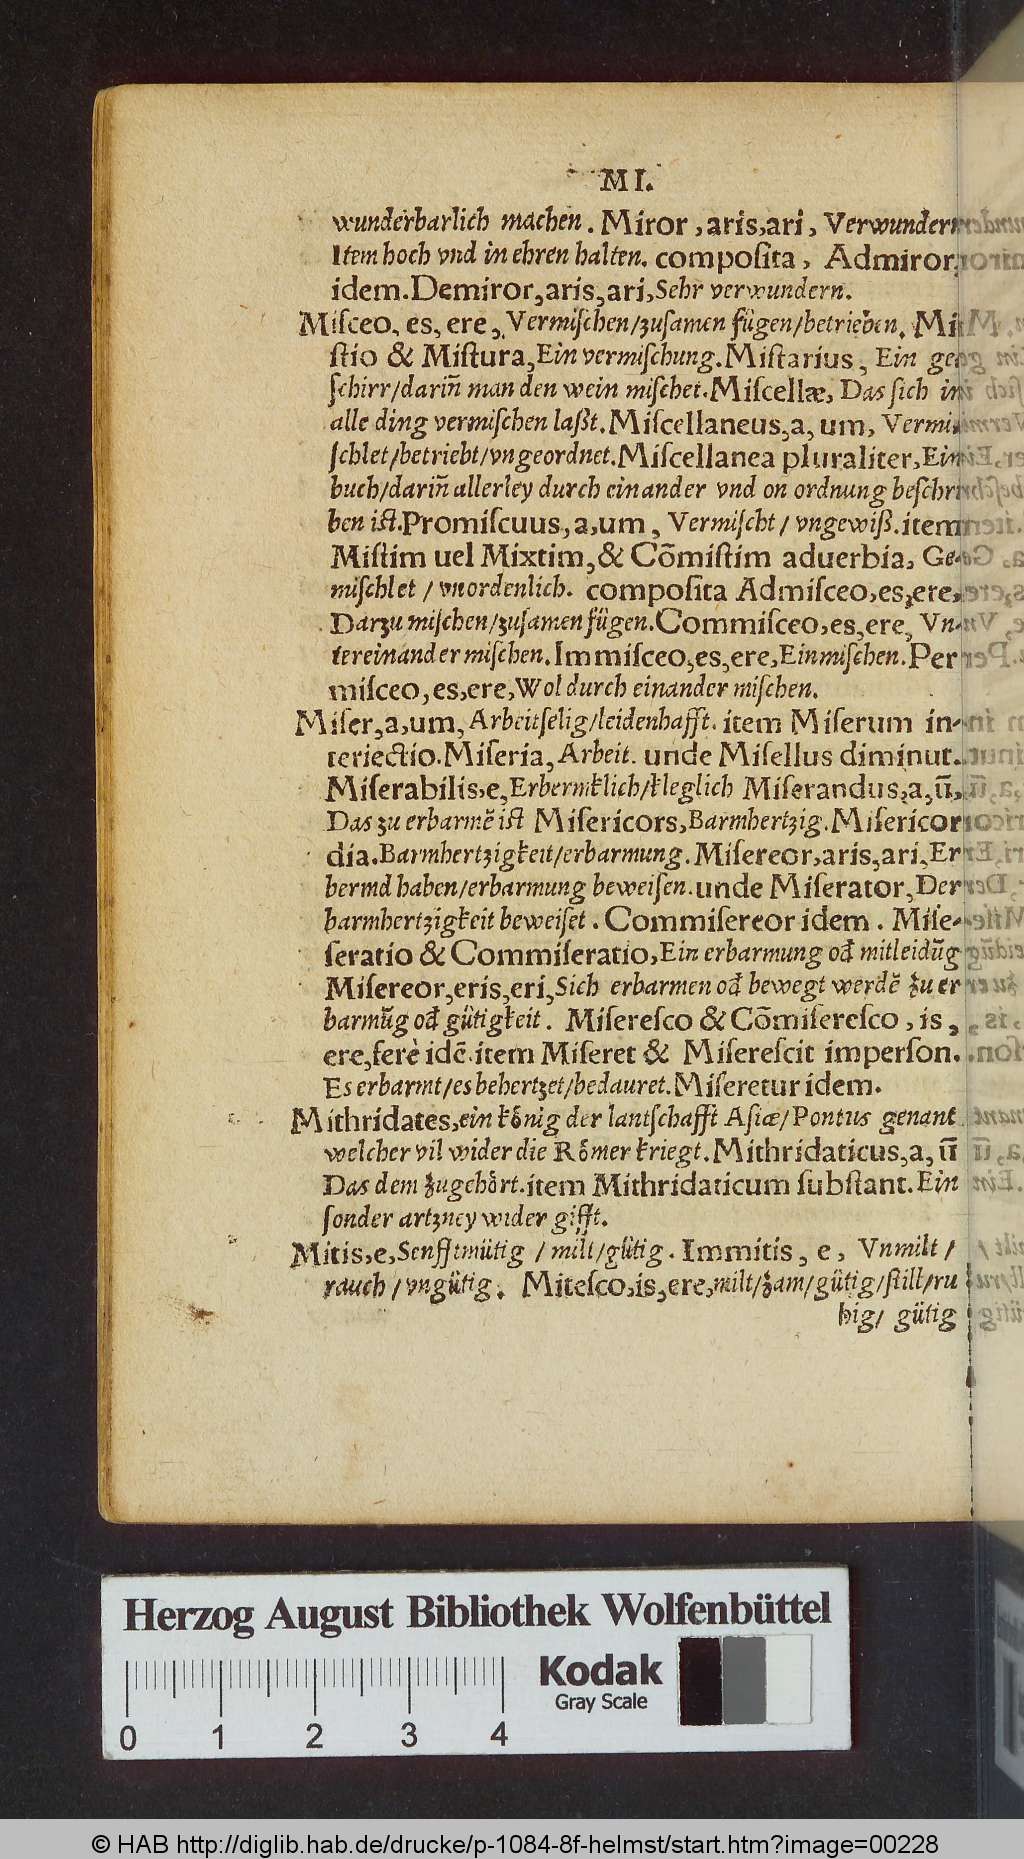 MI.
wunderbarlich machen. Miror, aris, ari, Verwundern
Item hoch vnd in ehren halten. compoſita, Admiror
idem. Demiror, aris, ari, Sehr verwundern.
Miſceo, es, ere, Vermiſchen/zuſamen fügen/betrieben. Mi
ſtio & Miſtura, Ein vermiſchung. Miſtarius, Ein ge
ſchirr/dariñ man den wein miſchet. Miſcellæ, Das ſich in
alle ding vermiſchen laßt. Miſcellaneus, a, um, Vermi
ſchlet/betriebt/vngeordnet. Miſcellanea pluraliter, Ein
buch/dariñ allerley durch einander vnd on ordnung beſchri
ben iſt. Promiſcuus, a, um, Vermiſcht/vngewiß. item
Miſtim uel Mixtim, & Cõmiſtim aduerbia, Ge-
miſchlet/vnordenlich. compoſita Admiſceo, es, ere,
Darzu miſchen/zuſamen fügen. Commiſceo, es, ere, Vn-
tereinander miſchen. Immiſceo, es, ere, Einmiſchen. Per
miſceo, es, ere, Wol durch einander miſchen.
Miſer, a, um, Arbeitſelig/leidenhafft. item Miſerum in-
teriectio. Miſeria, Arbeit. unde Miſellus diminut.
Miſerabilis, e, Erbermklich/kleglich Miſerandus, a, ũ,
Das zu erbarmẽ iſt Miſericors, Barmhertzig. Miſericor
dia. Barmhertzigkeit/erbarmung. Miſereor, aris, ari, Er
bermd haben/erbarmung beweiſen. unde Miſerator, Der
barmhertzigkeit beweiſet. Commiſereor idem. Miſe-
ſeratio & Commiſeratio, Ein erbarmung od̃ mitleidũg
Miſereor, eris, eri, Sich erbarmen od̃ bewegt werdẽ zu er
barmũg od̃ gütigkeit. Miſereſco & Cõmiſereſco, is,
ere, ferè idẽ. item Miſeret & Miſereſcit imperſon.
Es erbarmt/es behertzet/bedauret. Miſeretur idem.
Mithridates, ein kͤonig der lantſchafft Aſiæ/Pontus genant
welcher vil wider die Rͤomer kriegt. Mithridaticus, a, ũ
Das dem zugehͤort. item Mithridaticum ſubſtant. Ein
ſonder artzney wider gifft.
Mitis, e, Senfftmütig/milt/gütig. Immitis, e, Vnmilt/
rauch/vngütig. Miteſco, is, ere, milt/zam/gütig/ſtill/ru
big/ gütig
Herzog August Bibliothek Wolfenbüttel
Kodak
Gray Scale
0 1 2 3 4
© HAB http://diglib.hab.de/drucke/p-1084-8f-helmst/start.htm?image=00228